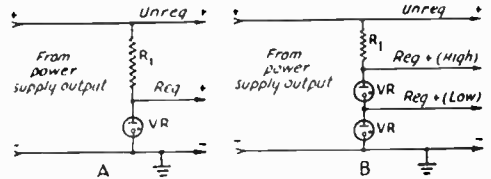 + Unreg +
From
power
supply output
R1
Reg +
VR
- -
A
+ Unreg +
From
power
supply output
R1
Reg + (High)
VR
Reg + (Low)
VR
- -
B